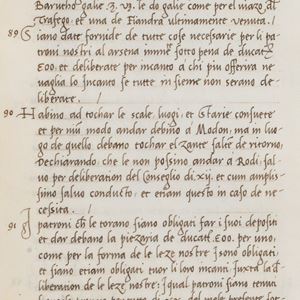 Barutho galie .3. v3. le do galie come per el viazo al
Trafego, et una de Fiandra ultimamente venuta./
89 Siano datt fornide de tutte cose necessarie per li pa
troni nostri al arsena imme sotto pena de ducatt
500. et deliberate per incanto a chi piu offerira ne
vaglia lo Incanto se tutte insieme non serano de
liberate./
90 Habino ad tochar le scale, luogi, et starie consuete
et per niũ modo andar debino a Modon, ma in luo
go de quello, debano tochar el zante salie de ritorno,
Dechiarando che le non possino andar a Rodi, sal
vo per deliberation del Conseglio di .XII. et cum amplis
simo salvo conducto, et etiam questo in caso de ne
cessita./
91 I patroni ch le torano siano obligati far i suoi depositi
et dar debano la piezaria de ducatt .500. per uno,
come per la forma de le leze nostre sono obligati,
et siano etiam obligati tuor li loro incanti juxta la
deliberation de le leze nostre: I qual patroni siano tenuti